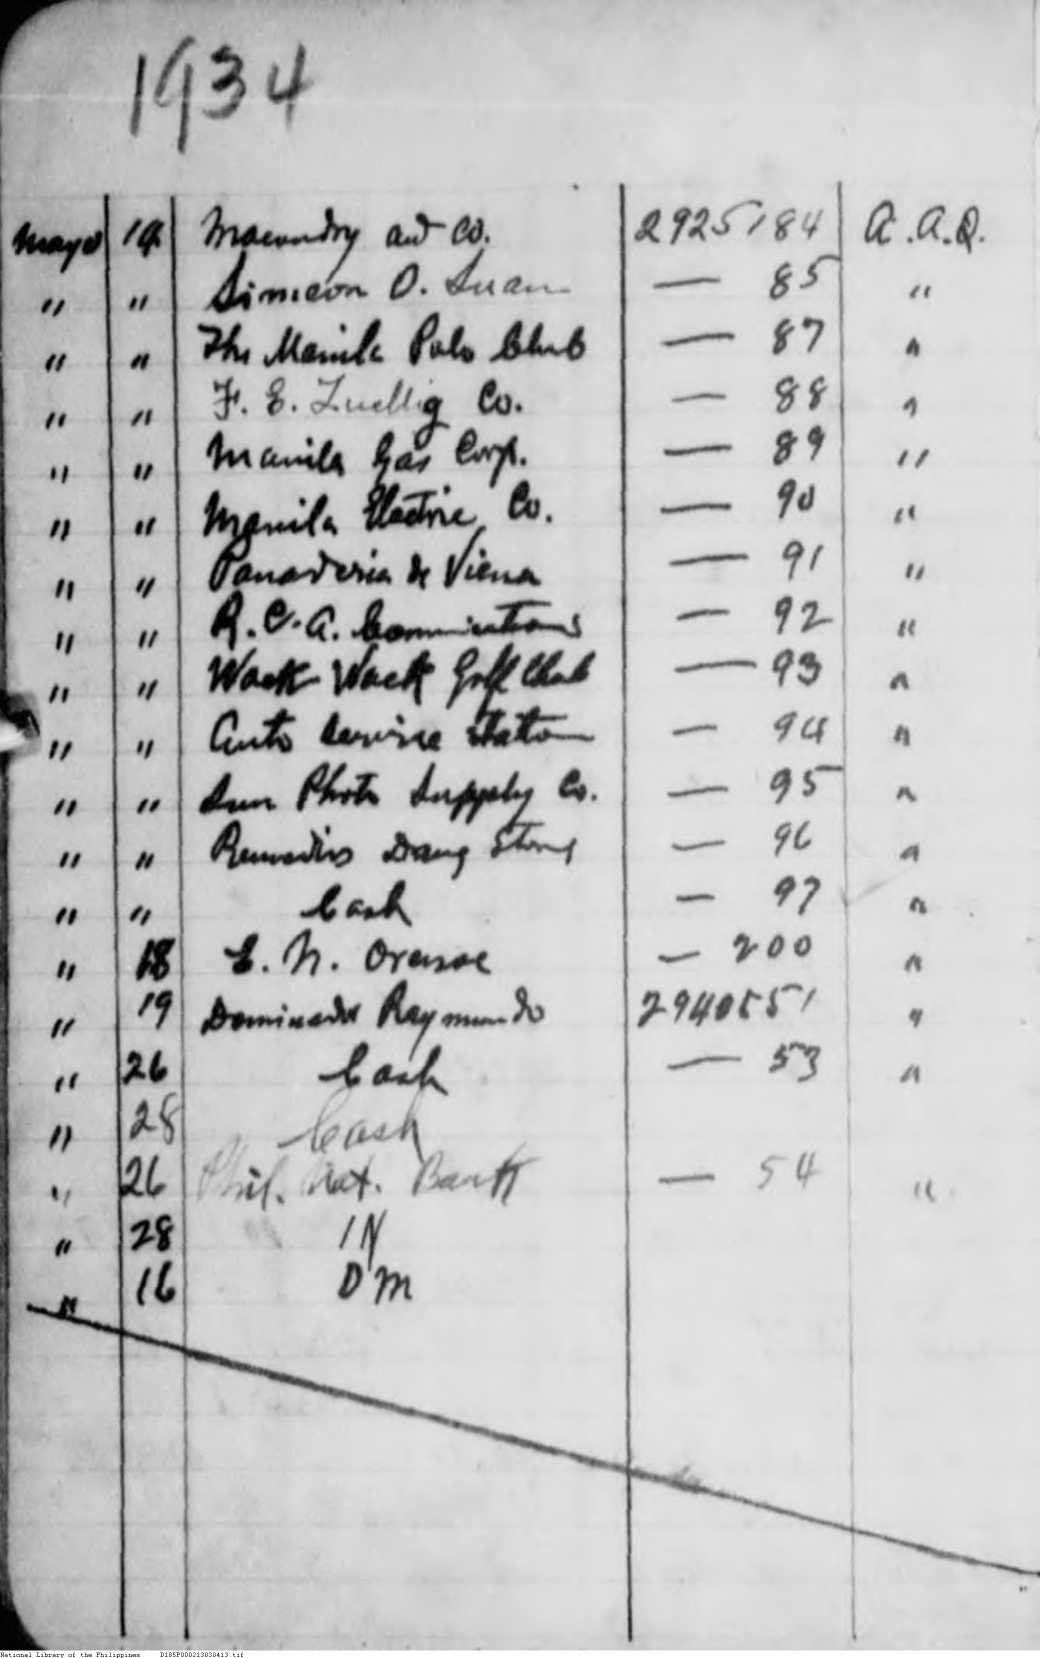 1934
Mayo 14 Macondry and Co. 2925184 A.A.Q.
" " Simeon O. — 85 "
" " The Manila Polo Club — 87 "
" " F. E. Zuellig Co. — 88 "
" " Manila Gas Corp. — 89 "
" " Manila Electric Co. — 90 "
" " Panaderia de Viena — 91 "
" " R.C.A. — 92 "
" " Wack Wack Golf Club — 93 "
" " Auto Service Station — 94 "
" " Sun Photo Supply Co. — 95 "
" " Remedios Store — 96 "
" " Cash — 97 "
" 18 E. N. Orense — 200 "
" 19 Dominador Raymundo 2940551 "
" 26 Cash — 53 "
" 28 Cash
" 26 Phil. Nat. Bank — 54 "
" 28 IN
" 16 DM
National Library of the Philippines